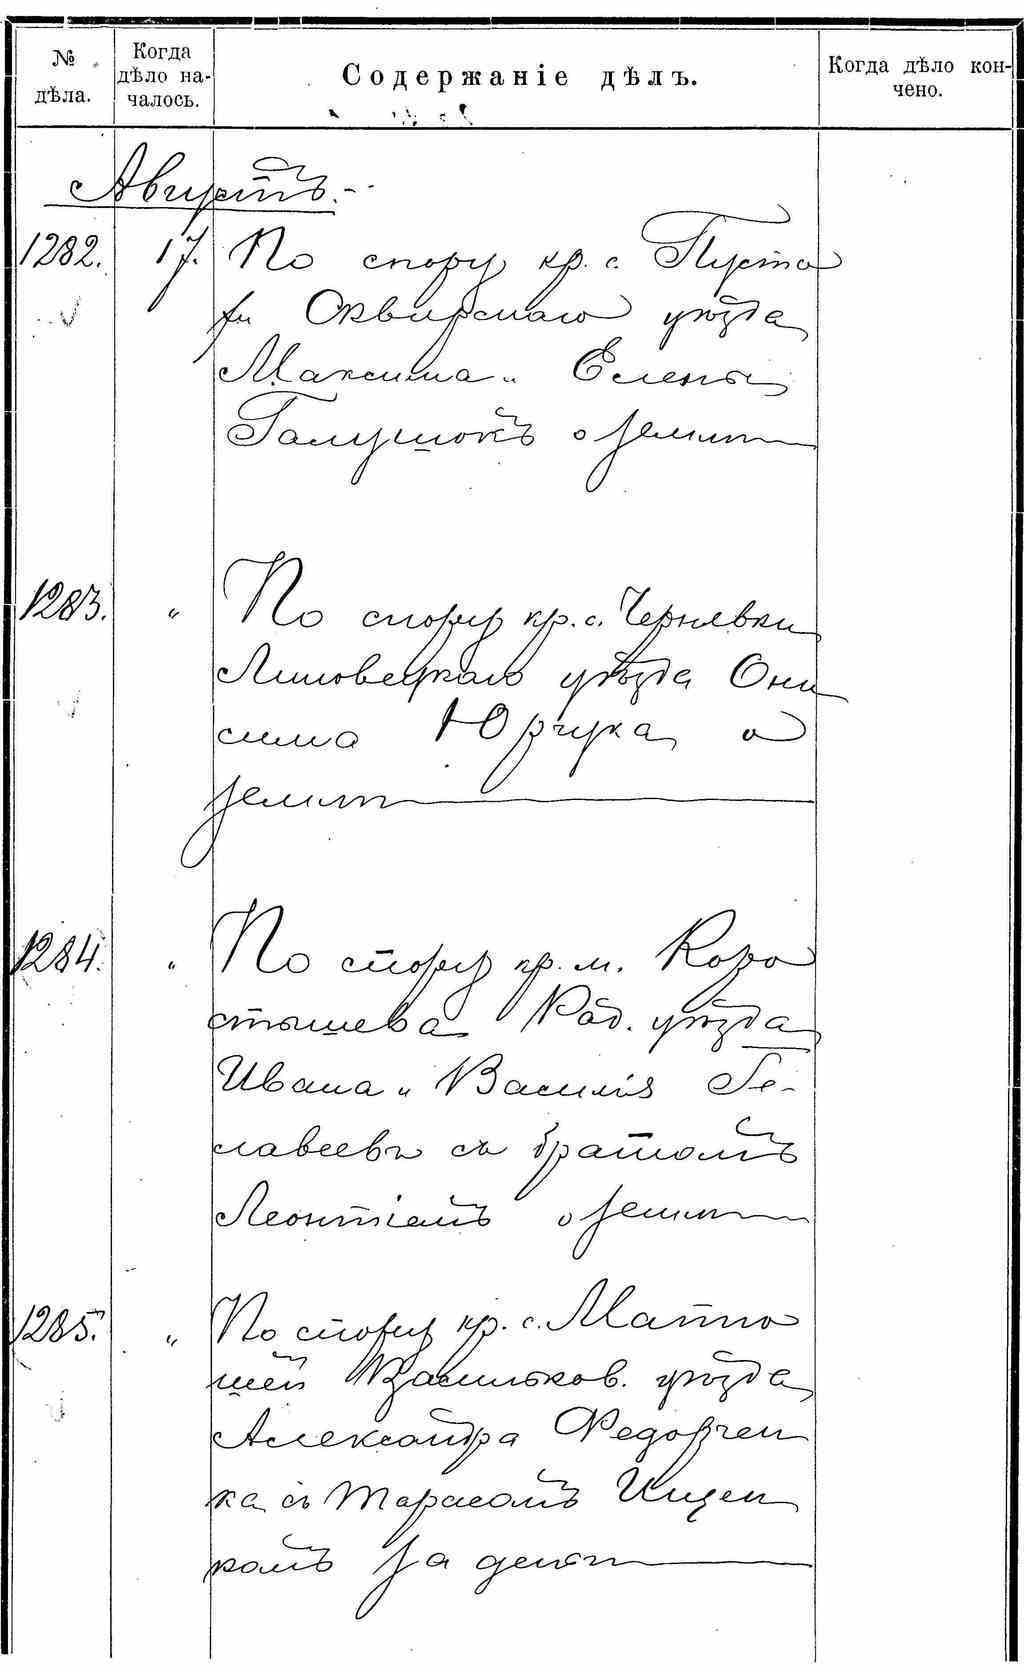 № дѣла.
Когда дѣло на-
чалось.
Содержаніе дѣлъ.
Когда дѣло кон-
чено.
Августъ.
1282. 17. По спору кр. с. Пусто
Сквирскаго уѣзда
Максима и Елены
Галушокъ о землѣ
1283. " По спору кр. с. Чернявки
Липовецкаго уѣзда Они
сима Юрчука о
землѣ
1284. " По спору кр. м. Коро
стышева Рад. уѣзда
Ивана и Василія Ге-
лавеевъ съ братомъ
Леонтіемъ о землѣ
1285. " По спору кр. с. Матю
шей Васильков. уѣзда
Александра Федорчен
ка съ Тарасомъ Ищен
комъ за